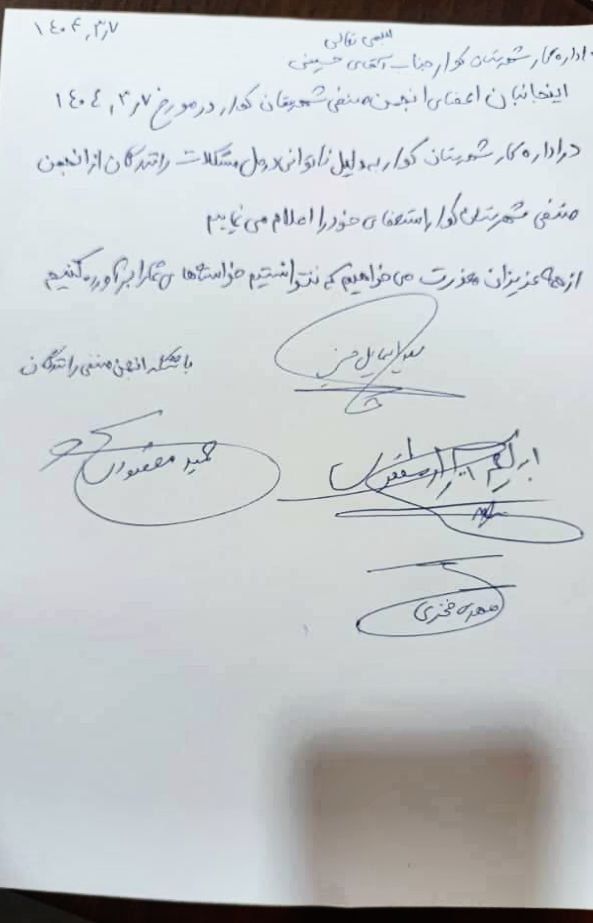 ۱۴۰۴,۳,۷
بسمی تعالی
اداره کار شهرستان کوار جناب آقای حسینی
اینجانبان اعضای انجمن صنفی شهرستان کوار در مورخ ۱۴۰۴,۳,۷
در اداره کار شهرستان کوار به دلیل ناتوانی در حل مشکلات رانندگان از انجمن
صنفی شهرستان کوار استعفای خود را اعلام می نماییم
از همه عزیزان معذرت می خواهیم که نتوانستیم خواسته های شما را برآورده کنیم
با تشکر انجمن صنفی رانندگان
ابراهیم
حمید
مهدی فخری